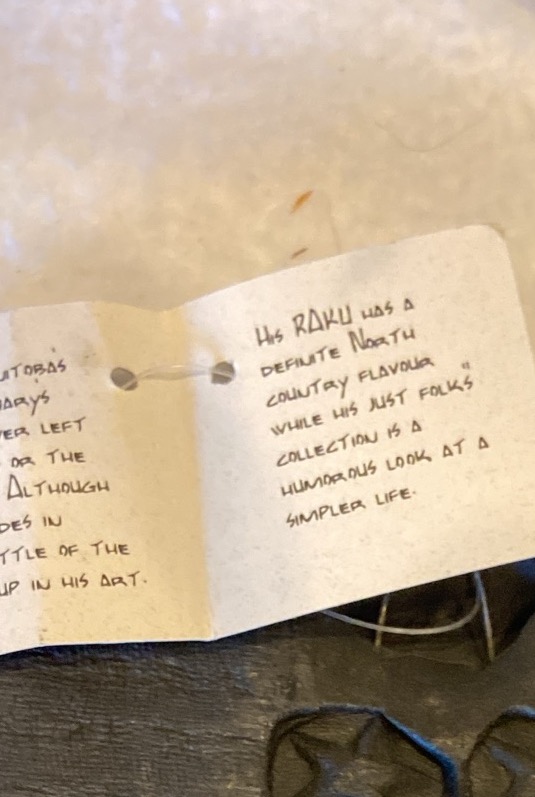 ITOBA'S
ARY'S
ER LEFT
OR THE
ALTHOUGH
DES IN
TTLE OF THE
UP IN HIS ART.
HIS RAKU HAS A
DEFINITE NORTH
COUNTRY FLAVOUR
WHILE HIS JUST FOLKS"
COLLECTION IS A
HUMOROUS LOOK AT A
SIMPLER LIFE.